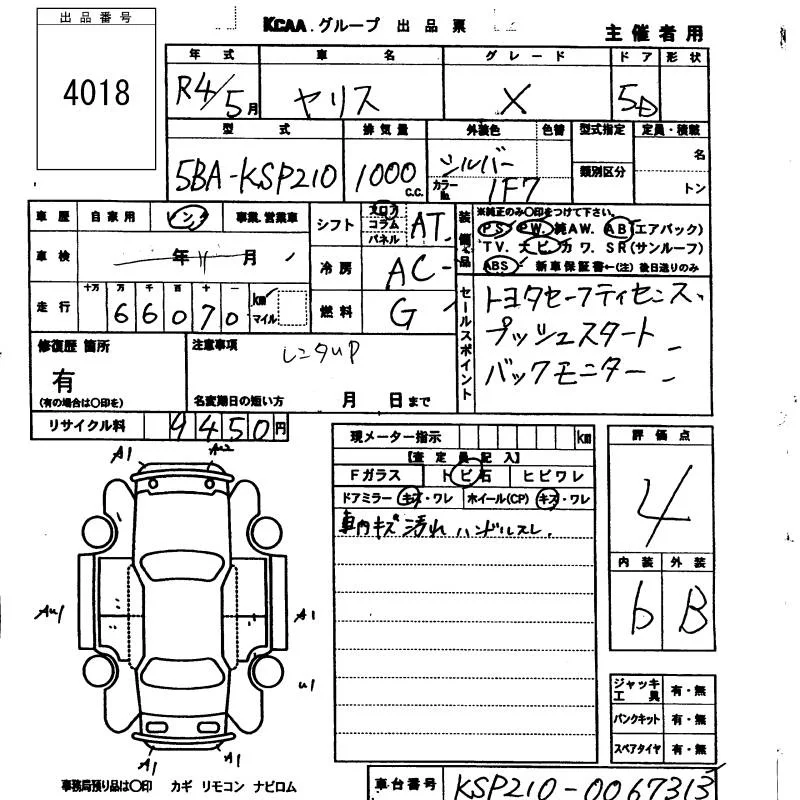 出品番号
4018
KCAA.グループ 出品票
主催者用
年式 車名 グレード ドア 形状
R4/5月 ヤリス X 5D
型式 排気量 外装色 色替 型式指定 定員・積載
5BA-KSP210 1000c.c. シルバー カラーNo. 1F7 類別区分 名 トン
車歴 自家用 レンタ 事業.営業車
車検 年 月
走行 十万 万 千 百 十 一
66070 km マイル
シフト フロア コラム パネル AT
冷房 AC
燃料 G
装備品
※純正のみ○印をつけて下さい。
PS. PW. 純AW. AB(エアバック)
TV. ナビ. カワ. SR(サンルーフ)
ABS 新車保証書←(注)後日送りのみ
セールスポイント
トヨタセーフティセンス、
プッシュスタート
バックモニター
修復歴 箇所
有
(有の場合は○印を)
注意事項
レンタUP
名変期日の短い方 月 日まで
リサイクル料 9450円
現メーター指示 km
【査定員記入】
Fガラス トビ石 ヒビワレ
ドアミラー キズ・ワレ ホイール(CP) キズ・ワレ
車内キズ 汚れ ハンドルスレ.
評価点
4
内装 外装
b B
A1 AU2
AU1 A1
U1
A1 A1
ジャッキ工具 有・無
パンクキット 有・無
スペアタイヤ 有・無
事務局預り品は○印 カギ リモコン ナビロム
車台番号 KSP210-0067313